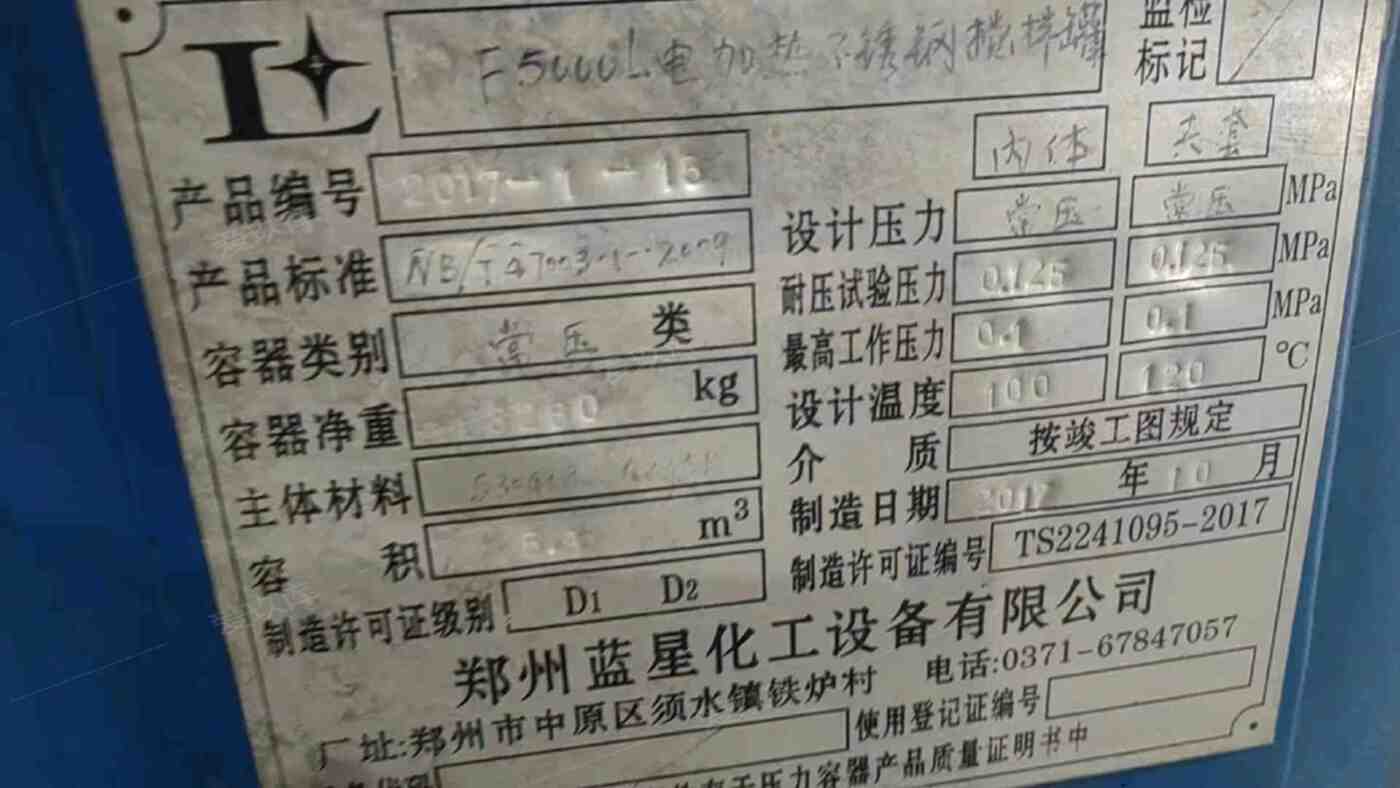 F5000L电加热不锈钢搅拌罐
监检
标记
内体 夹套
产品编号 2017-1-15
设计压力 常压 常压 MPa
产品标准 NB/T47003.1-2009
耐压试验压力 0.125 0.125 MPa
容器类别 常压 类
最高工作压力 0.1 0.1 MPa
容器净重 kg
设计温度 100 120 ℃
主体材料
介 质 按竣工图规定
容 积 m³
制造日期 2017 年 10 月
制造许可证级别 D1 D2
制造许可证编号 TS2241095-2017
郑州蓝星化工设备有限公司
厂址:郑州市中原区须水镇铁炉村 电话:0371-67847057
使用登记证编号
压力容器产品质量证明书中